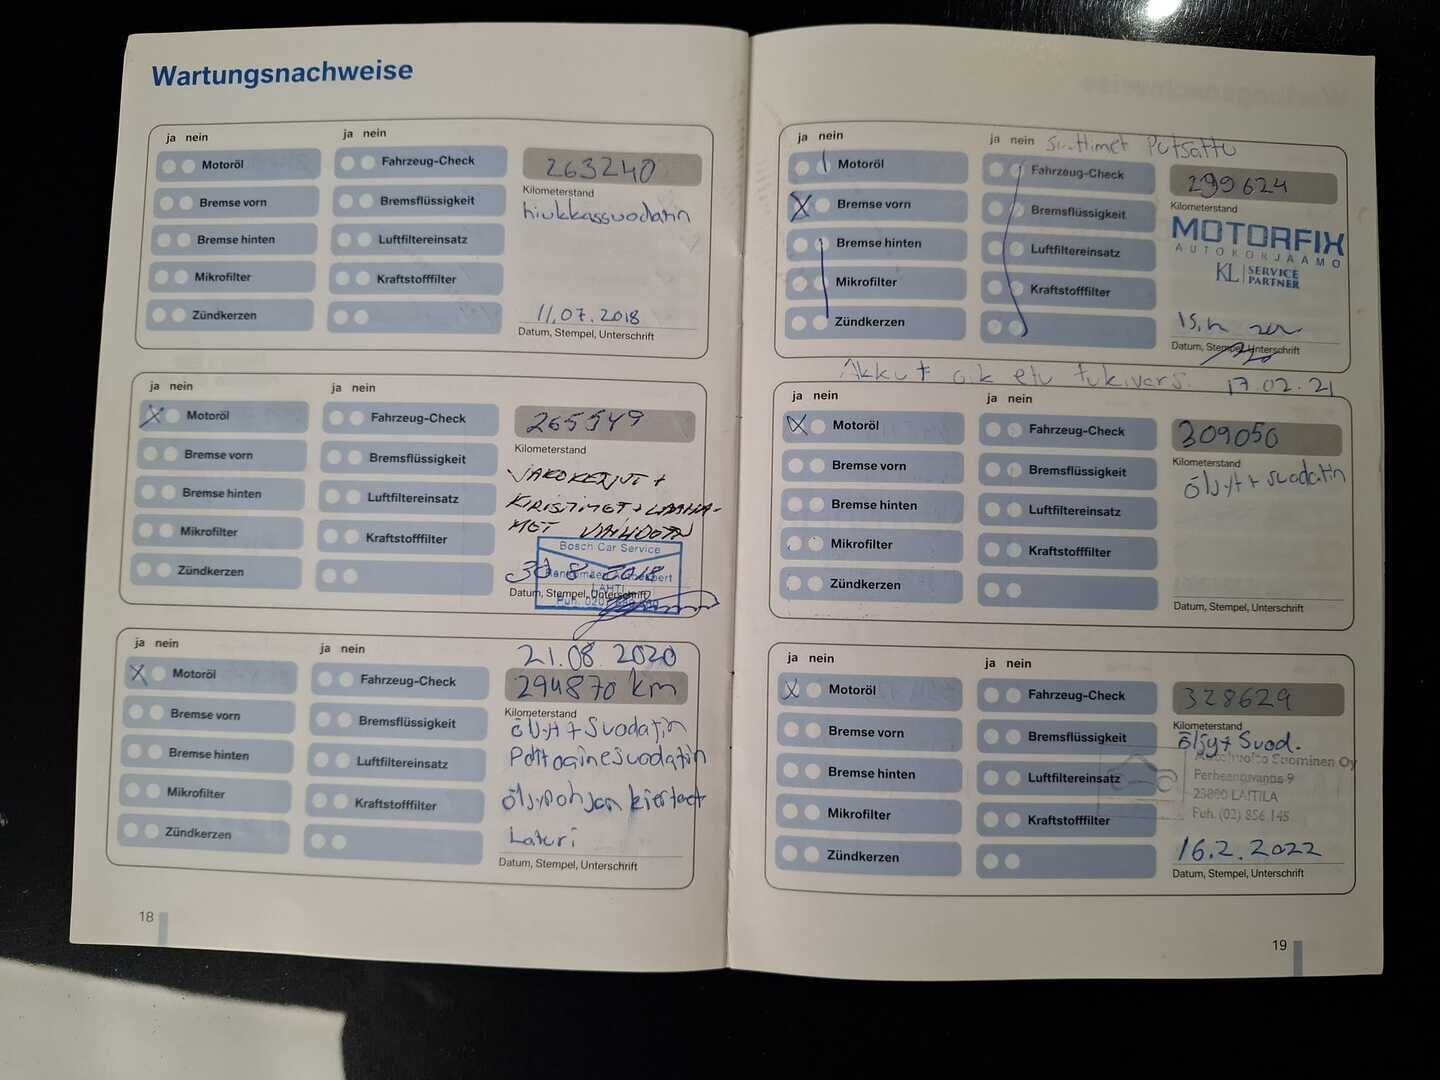 Wartungsnachweise
ja nein
ja nein
Motoröl
Fahrzeug-Check
263240
Kilometerstand
Bremse vorn
Bremsflüssigkeit
hiukkassuodatin
Bremse hinten
Luftfiltereinsatz
Mikrofilter
Kraftstofffilter
Zündkerzen
11.07.2018
Datum, Stempel, Unterschrift
ja nein
ja nein
X
Motoröl
Fahrzeug-Check
265549
Kilometerstand
Bremse vorn
Bremsflüssigkeit
JAKOKETJUT +
Bremse hinten
Luftfiltereinsatz
KIRISTIMET +
MET
Mikrofilter
Kraftstofffilter
Bosch Car Service
Zündkerzen
30.8.2018
LAHTI
Datum, Stempel, Unterschrift
ja nein
ja nein
21.08.2020
X
Motoröl
Fahrzeug-Check
294870 km
Kilometerstand
Bremse vorn
Bremsflüssigkeit
öljyt + Suodatin
Polttoainesuodatin
Bremse hinten
Luftfiltereinsatz
Mikrofilter
Kraftstofffilter
öljypohjan
Zündkerzen
Laturi
Datum, Stempel, Unterschrift
18
ja nein
ja nein
Putsattu
Motoröl
Fahrzeug-Check
299624
Kilometerstand
X
Bremse vorn
Bremsflüssigkeit
MOTORFIX
AUTOKORJAAMO
KL SERVICE PARTNER
Bremse hinten
Luftfiltereinsatz
Mikrofilter
Kraftstofffilter
Zündkerzen
Datum, Stempel, Unterschrift
Akku + oik etu tukivarsi 17.02.21
ja nein
ja nein
X
Motoröl
Fahrzeug-Check
309050
Kilometerstand
Bremse vorn
Bremsflüssigkeit
öljyt + suodatin
Bremse hinten
Luftfiltereinsatz
Mikrofilter
Kraftstofffilter
Zündkerzen
Datum, Stempel, Unterschrift
ja nein
ja nein
X
Motoröl
Fahrzeug-Check
328629
Kilometerstand
Bremse vorn
Bremsflüssigkeit
öljyt Suod.
Autohuolto Suominen Oy
Bremse hinten
Luftfiltereinsatz
23800 LAITILA
Mikrofilter
Kraftstofffilter
Puh. (02) 856 145
Zündkerzen
16.2.2022
Datum, Stempel, Unterschrift
19